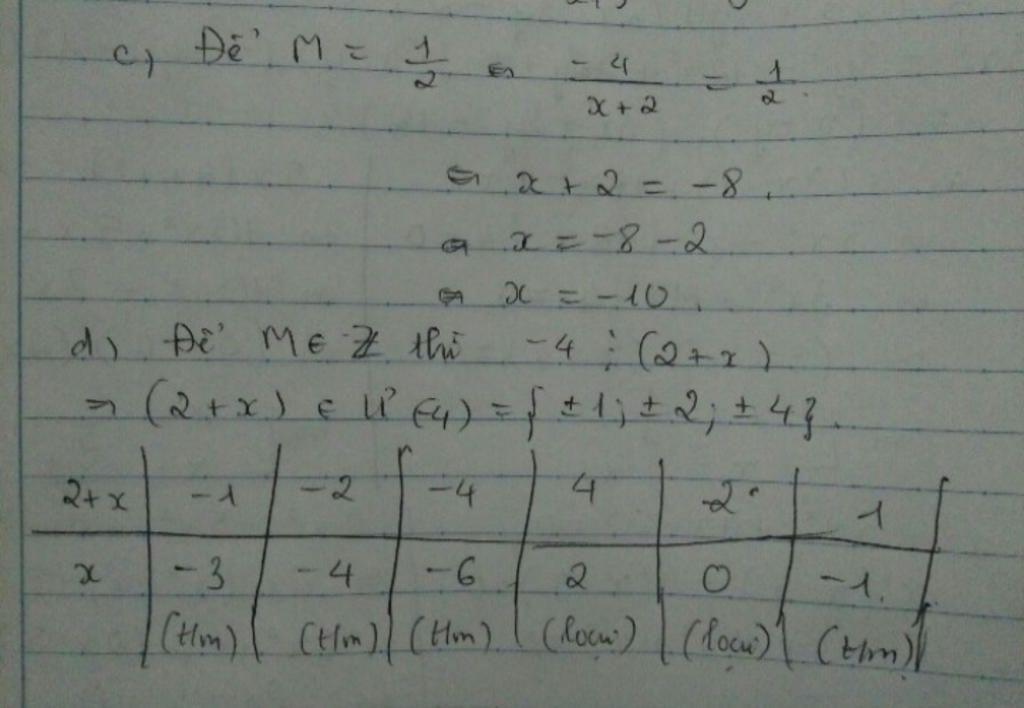 c) Để M = 1/2 ⇔ -4/(x+2) = 1/2.
⇔ x + 2 = -8.
⇔ x = -8 - 2
⇔ x = -10.
d) Để M ∈ Z thì -4 ⋮ (2+x)
⇒ (2+x) ∈ Ư(-4) = {±1; ±2; ±4}.
2+x | -1 | -2 | -4 | 4 | 2 | 1
x | -3 | -4 | -6 | 2 | 0 | -1.
(t/m) | (t/m) | (t/m) | (loại) | (loại) | (t/m)